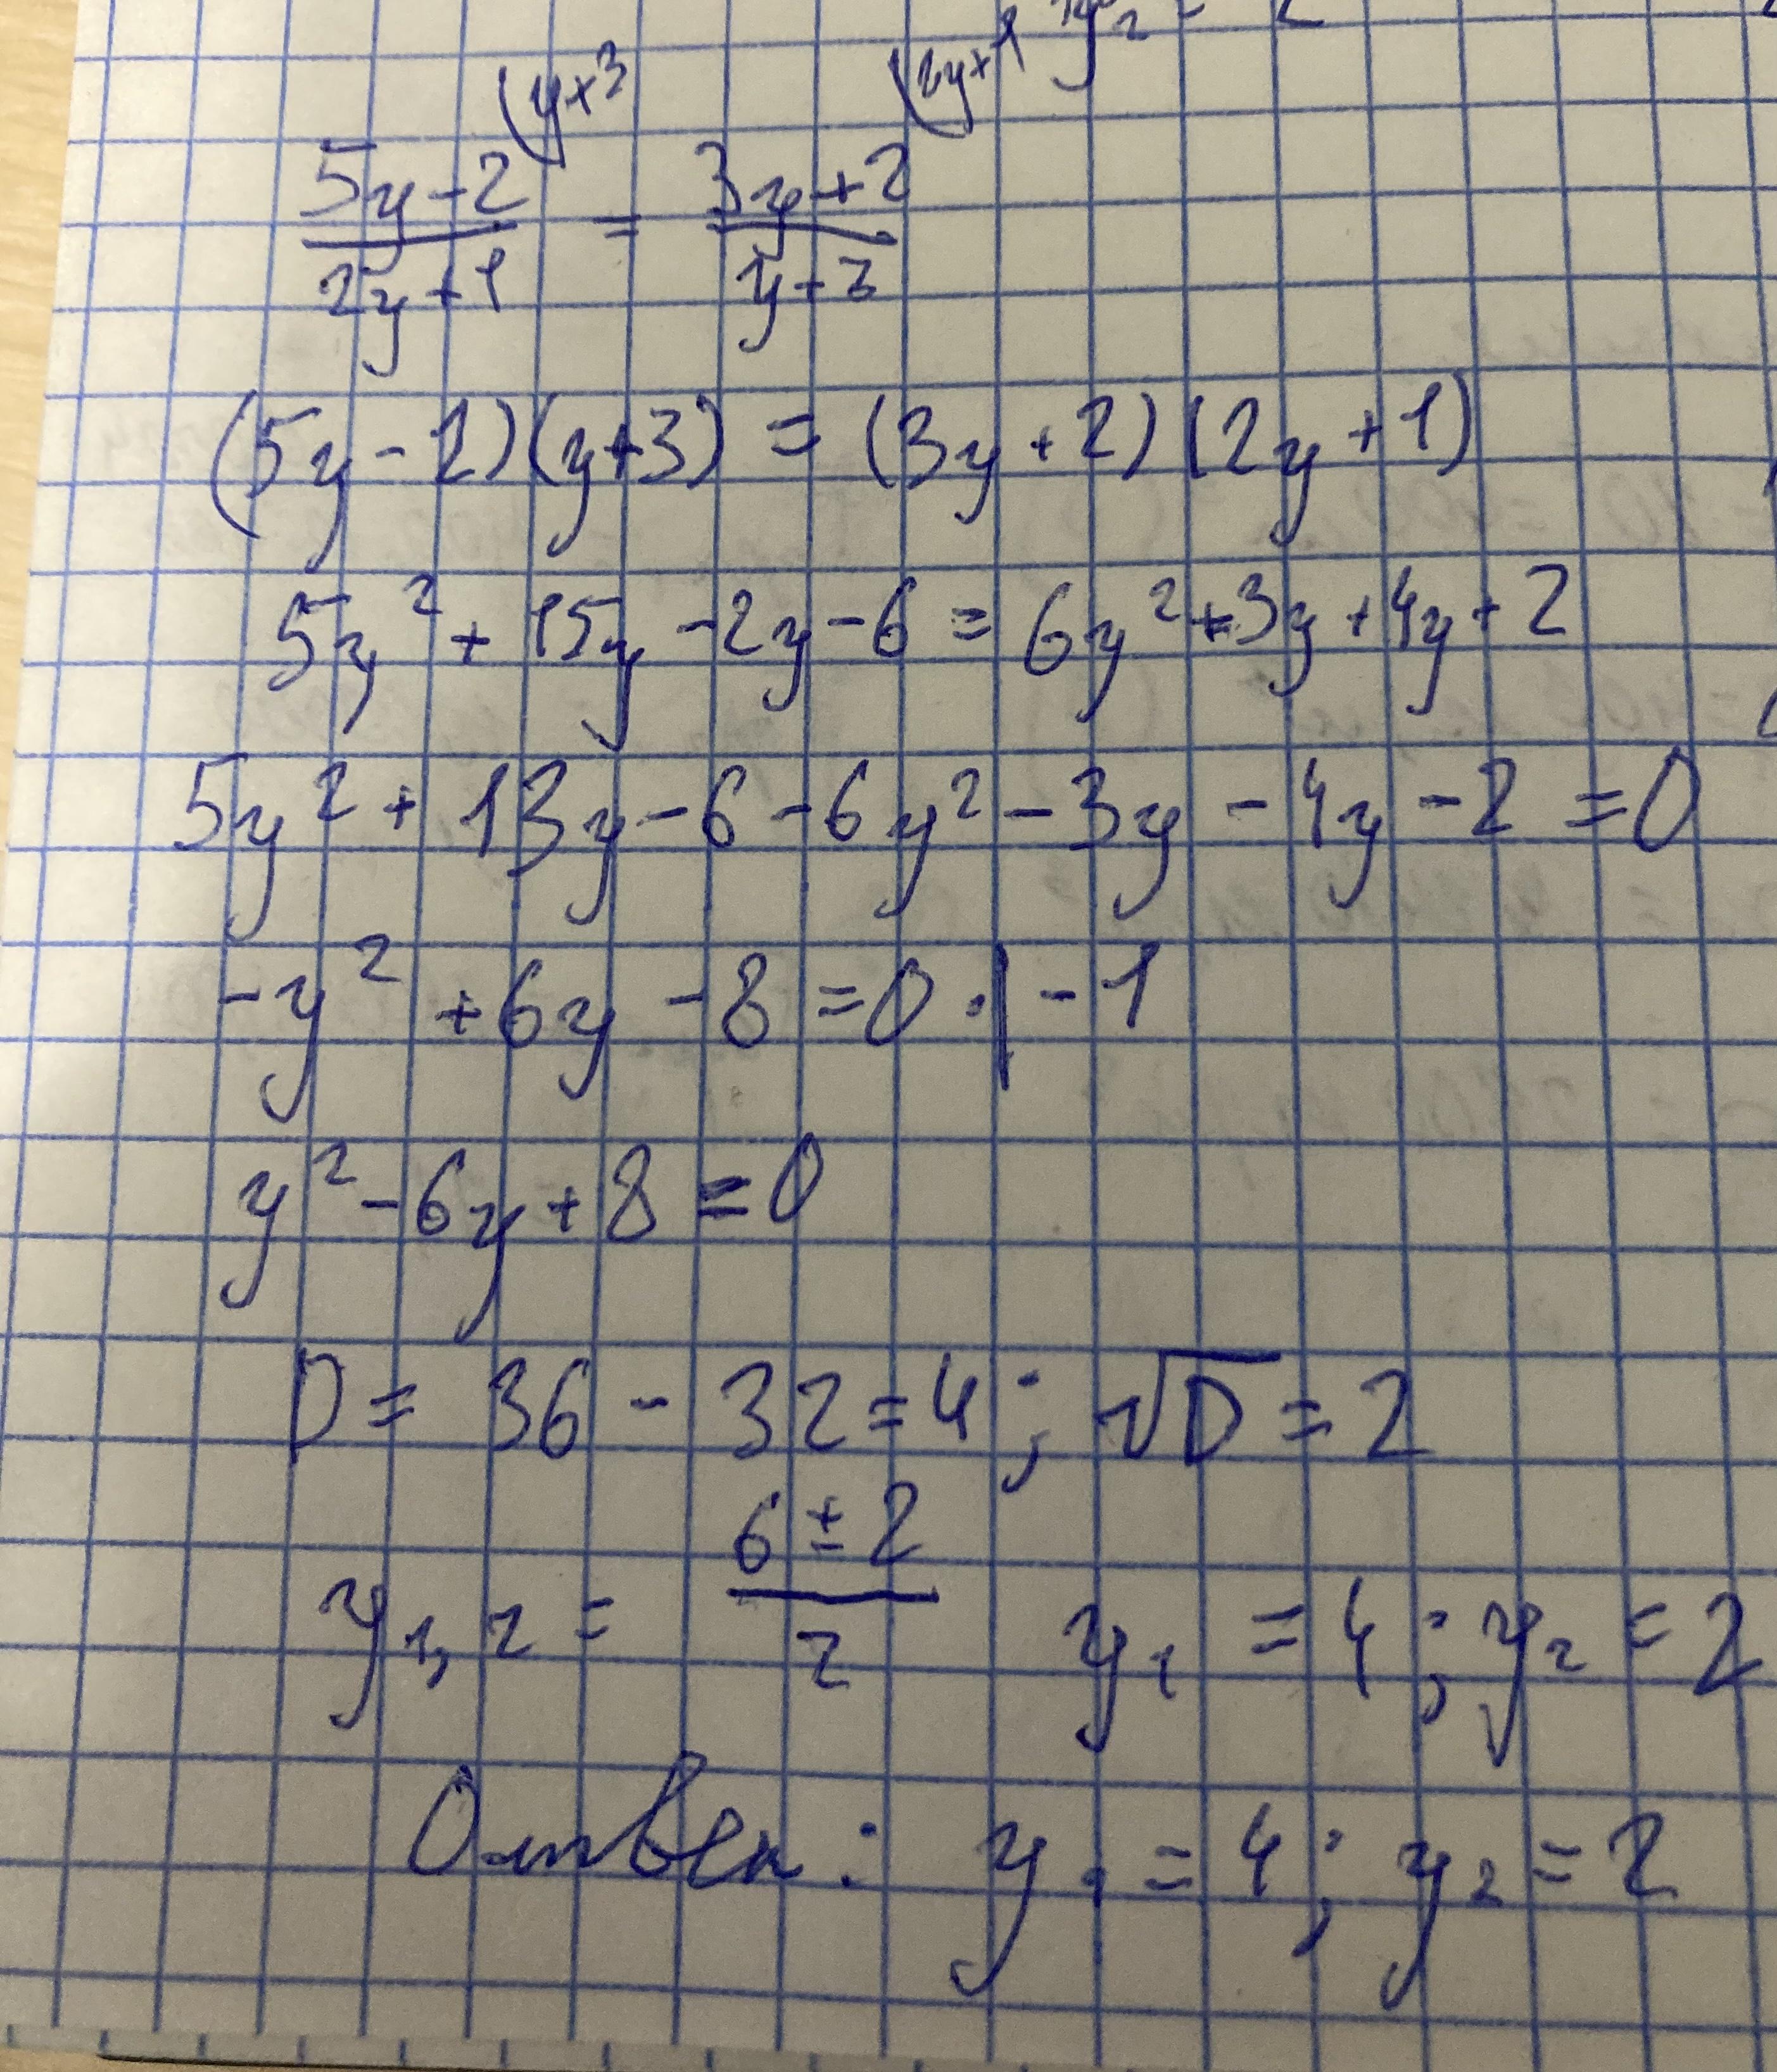 y₂ = 2
(y+3 (2y+1
5y-2 = 3y+2
2y+1 y+3
(5y-2)(y+3) = (3y+2)(2y+1)
5y² + 15y -2y -6 = 6y² +3y +4y + 2
5y² + 13y -6 -6y² -3y -4y -2 =0
-y² +6y -8 =0 ·| -1
y² -6y +8 =0
D = 36 - 32 = 4 ; √D = 2
6 ± 2
y₁,₂ = 2 y₁ = 4 ; y₂ = 2
Ответ: y₁ = 4 ; y₂ = 2